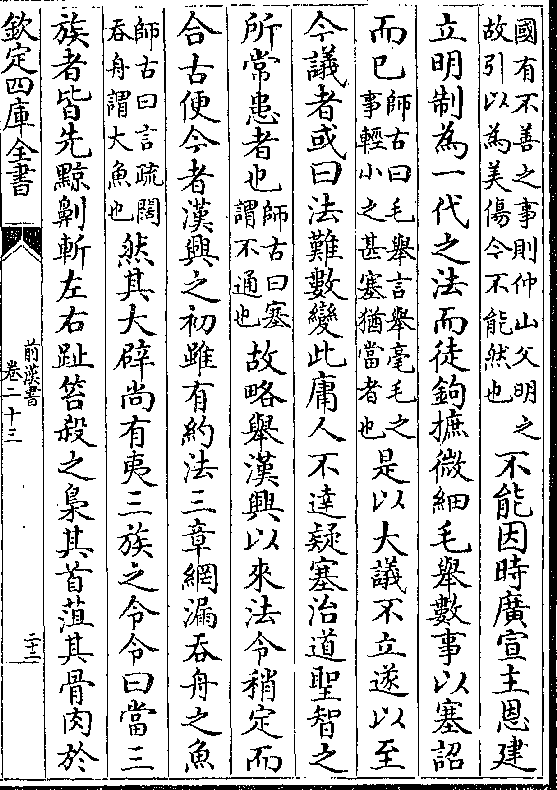 國有不善之事則仲山父明之
故引以為美傷今不能然也
不能因時廣宣主恩建
立明制為一代之法而徒鉤摭微細毛舉數事以塞詔
而已
師古曰毛舉言舉毫毛之
事輕小之甚塞猶當者也
是以大議不立遂以至
今議者或曰法難數變此庸人不達疑塞治道聖智之
所常患者也
師古曰塞
謂不通也
故略舉漢興以來法令稍定而
合古便今者漢興之初雖有約法三章網漏吞舟之魚
師古曰言疏闊
吞舟謂大魚也
然其大辟尚有夷三族之令令曰當三
族者皆先黥劓斬左右趾笞殺之梟其首菹其骨肉於
欽定四庫全書
前漢書
卷二十三
二十二